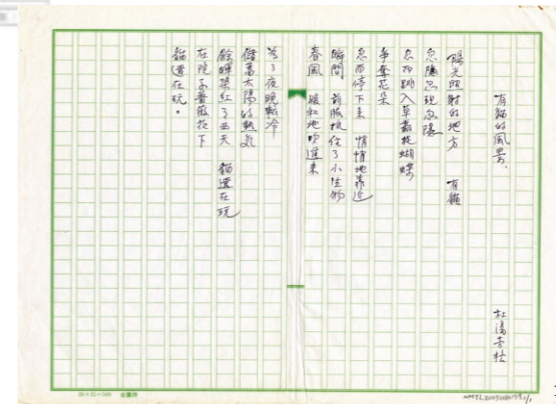 有貓的風景
杜潘芳格
陽光照射的地方　有貓
忽隱忽現忽隱
忽而跳入草叢捉蝴蝶
爭奪花朵
忽而停下來　悄悄地靠近
瞬間　前腳抓住了小生物
春風　暖和地吹進來
為了夜晚較冷
儲蓄太陽的熱氣
餘暉染紅了西天　貓還在玩
在院子薔薇花下
貓還在玩。